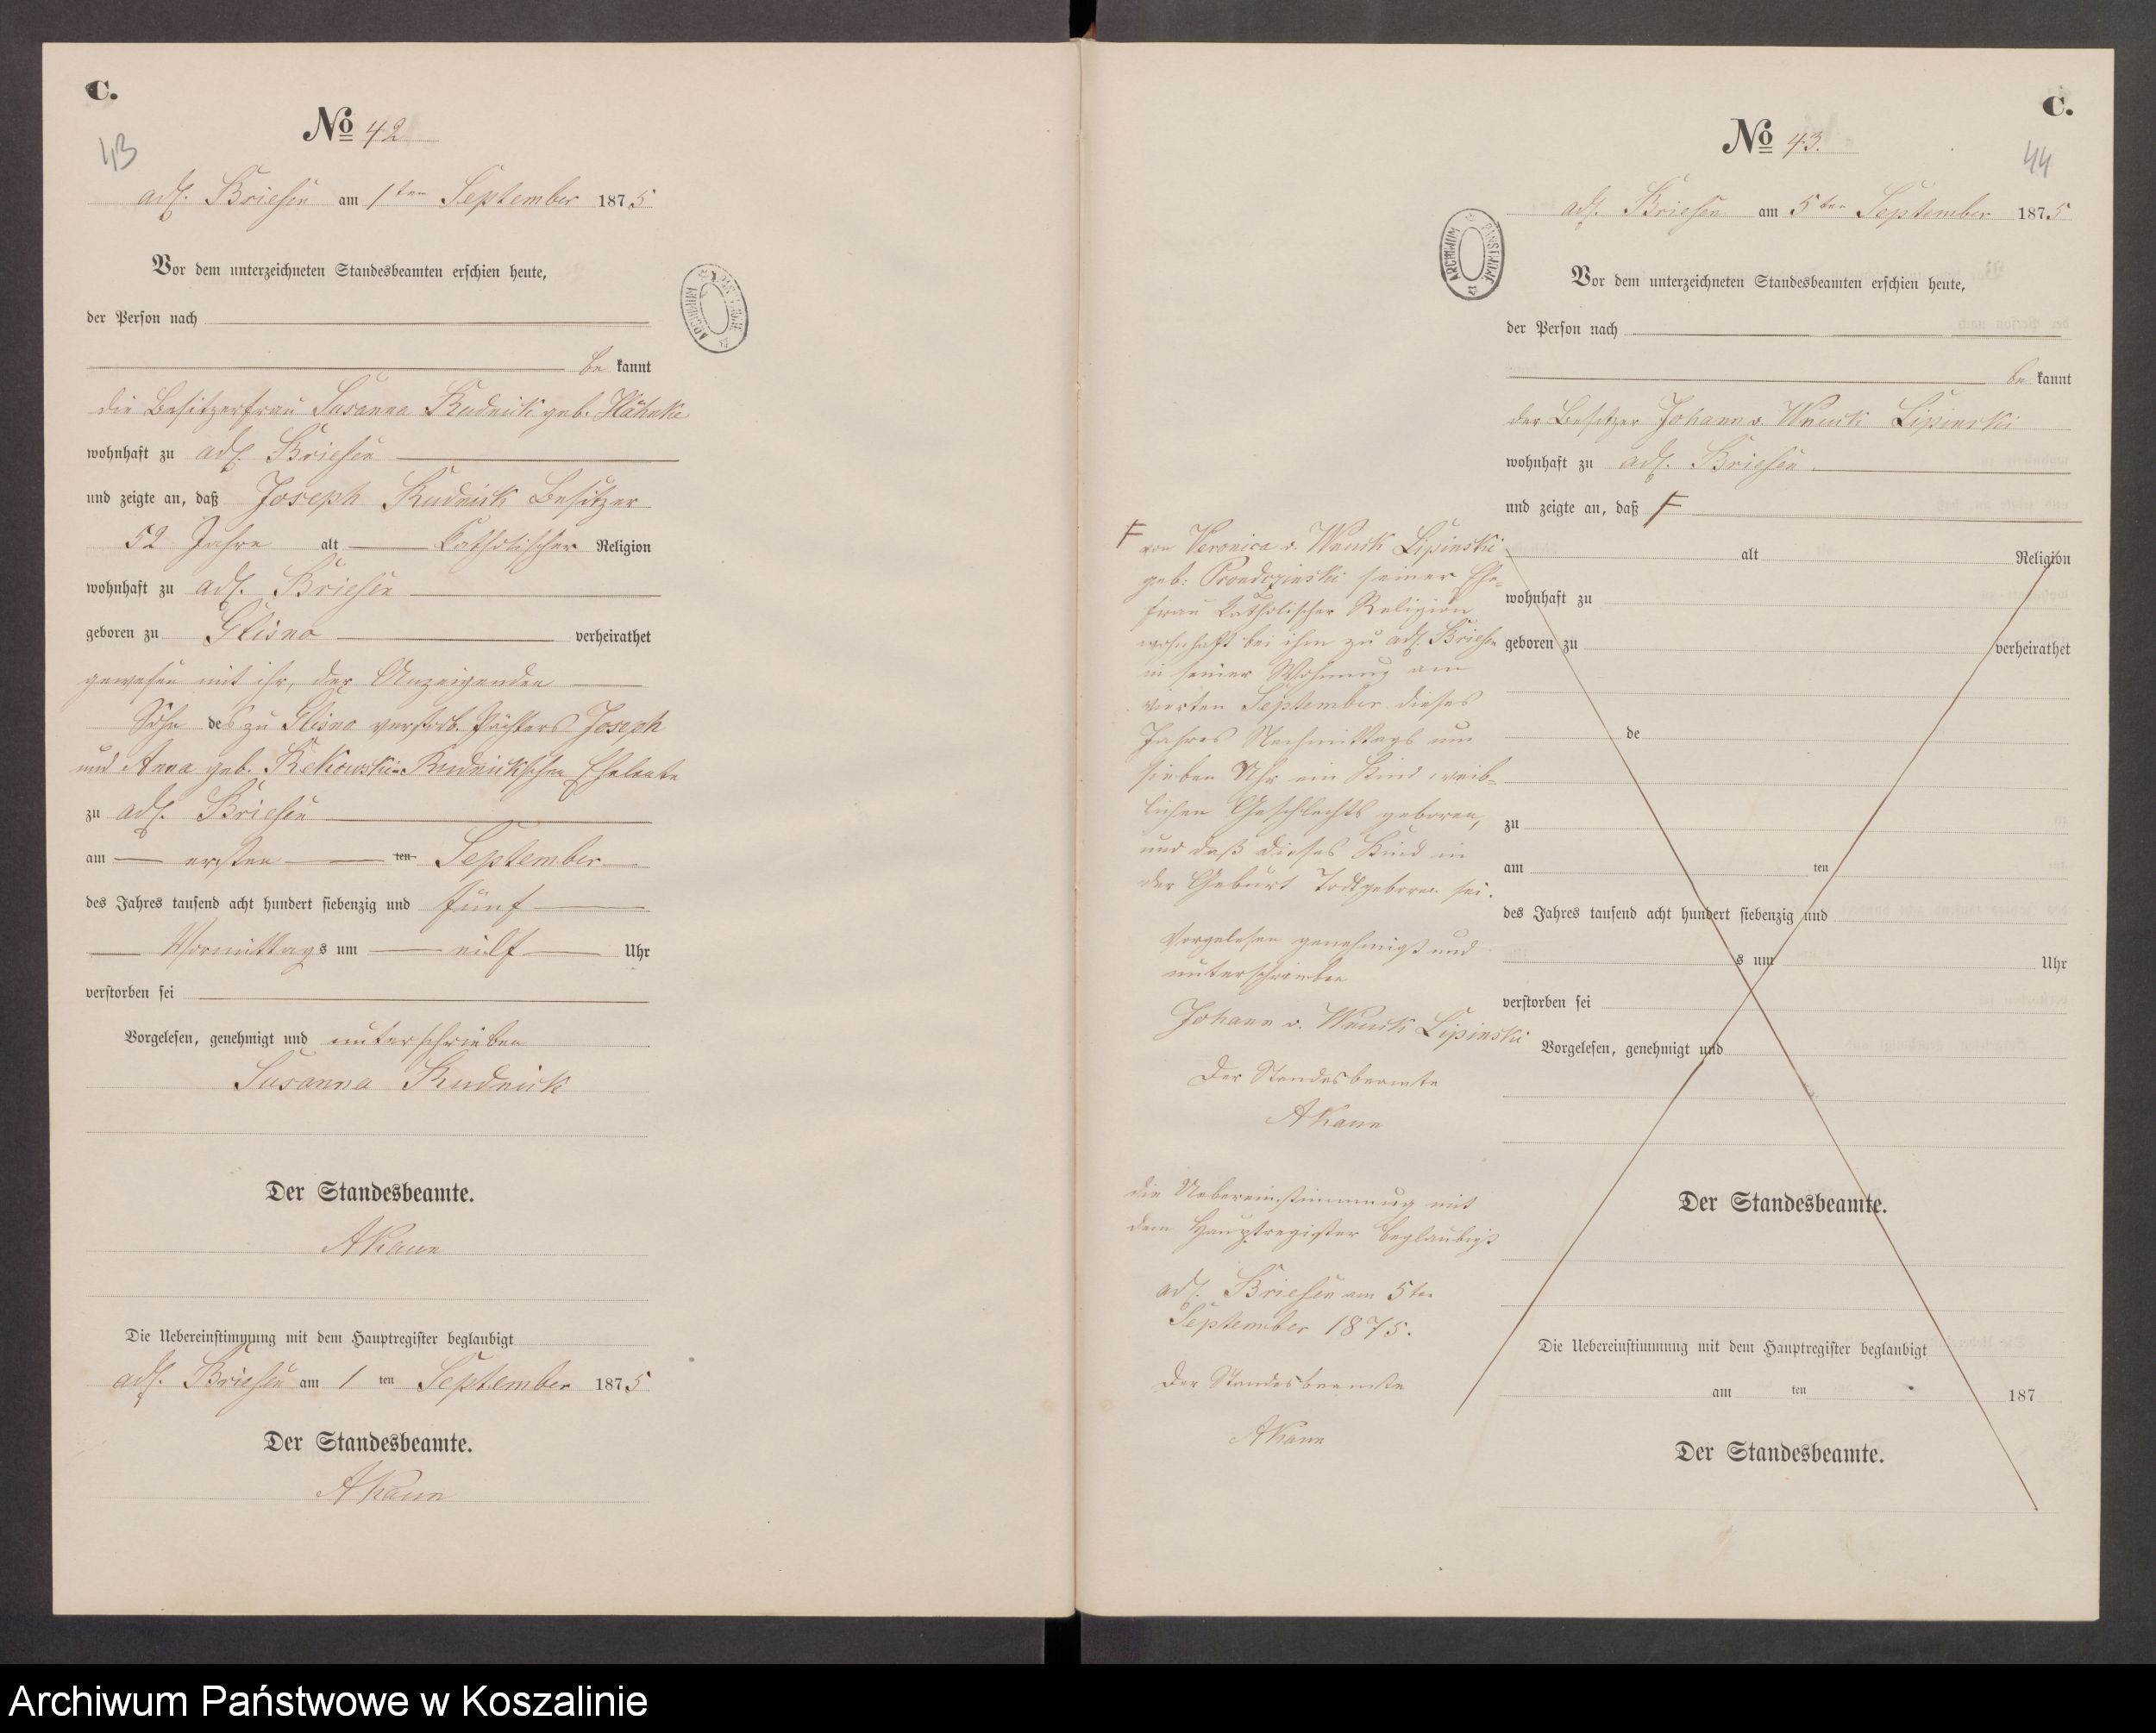 C.
No 42
43
adl. Briesen am 1ten September 1875
Vor dem unterzeichneten Standesbeamten erschien heute,
der Person nach
be kannt
die Besitzerfrau Susanna Rudnick geb. Hähnke
wohnhaft zu adl. Briesen
und zeigte an, daß Joseph Rudnick Besitzer
52 Jahre alt katholischer Religion
wohnhaft zu adl. Briesen
geboren zu Glisno verheirathet
gewesen mit ihr, der Anzeigenden
Sohn des zu Glisno verstorb. Pächters Joseph
und Anna geb. Rekowski-Rudnickschen Eheleute
zu adl. Briesen
am ersten ten September
des Jahres tausend acht hundert siebenzig und fünf
Vormittags um eilf Uhr
verstorben sei
Vorgelesen, genehmigt und unterschrieben
Susanna Rudnick
Der Standesbeamte.
AKann
Die Uebereinstimmung mit dem Hauptregister beglaubigt
adl. Briesen am 1 ten September 1875
Der Standesbeamte.
AKann
ARCHIWUM PAŃSTWOWE
C.
No 43.
44
adl. Briesen am 5ten September 1875
ARCHIWUM PAŃSTWOWE
Vor dem unterzeichneten Standesbeamten erschien heute,
der Person nach
be kannt
der Besitzer Johann v. Wnuck Lipinski
wohnhaft zu adl. Briesen
und zeigte an, daß F
F von Veronica v. Wnuck Lipinski
geb: Prondzinski seiner Ehe=
frau katholischer Religion
wohnhaft bei ihm zu adl. Briesen
in seiner Wohnung am
vierten September dieses
Jahres Nachmittags um
sieben Uhr ein Kind weib=
lichen Geschlechts geboren,
und daß dieses Kind in
der Geburt Todtgeboren sei.
Vorgelesen genehmigt und
unterschrieben
Johann v. Wnuck Lipinski
Der Standesbeamte
AKann
die Uebereinstimmung mit
dem Hauptregister beglaubigt
adl. Briesen am 5ten
September 1875.
Der Standesbeamte
AKann
alt Religion
wohnhaft zu
geboren zu verheirathet
de
zu
am ten
des Jahres tausend acht hundert siebenzig und
s um Uhr
verstorben sei
Vorgelesen, genehmigt und
Der Standesbeamte.
Die Uebereinstimmung mit dem Hauptregister beglaubigt
am ten 187
Der Standesbeamte.
Archiwum Państwowe w Koszalinie